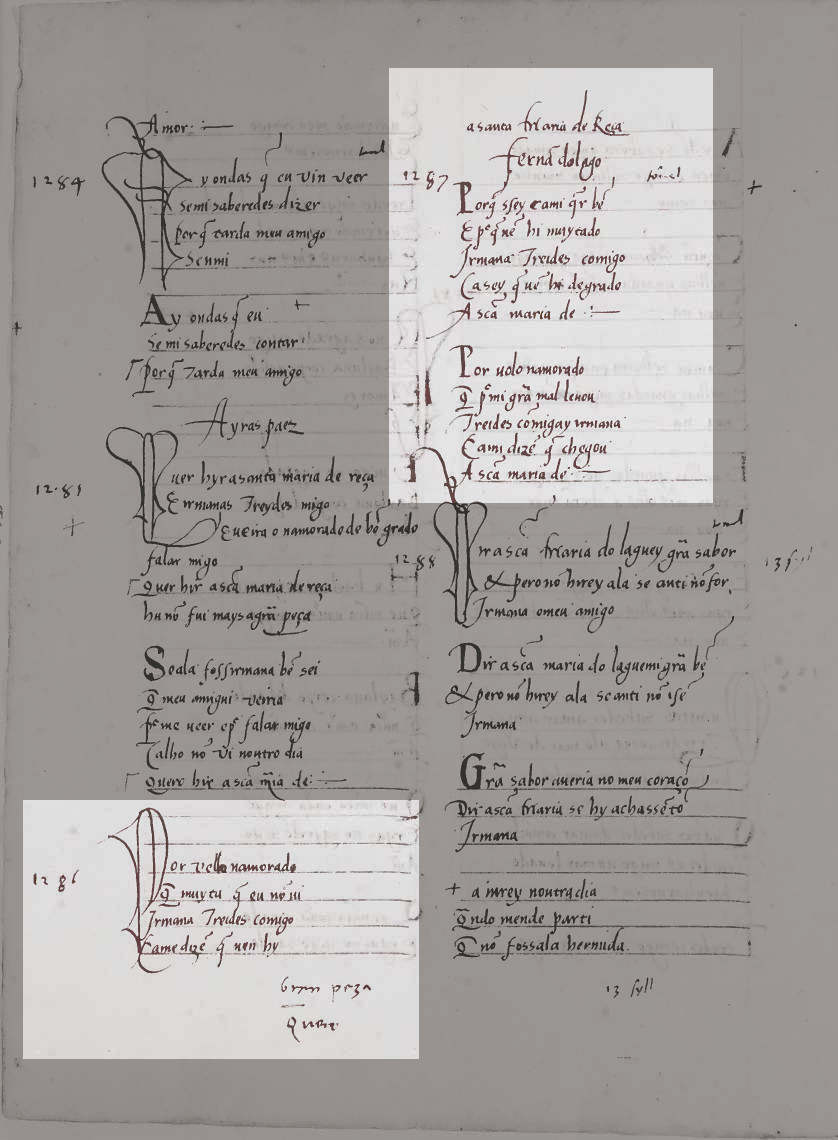 Amor:
tornel
1284 Ay ondas q̄ eu vin veer
Semi saberedes dizer
porq̄ tarda meu amigo
Senmi
Ay ondas q̄ eu
Semi saberedes contar
porq̄ tarda meu amigo
Ayras paez
1285 Quer hyr a santa maria de reça
E irmanas Treydes migo
E ueira o namorado de bō grado
falar migo
Quer hir a scā maria de reça
hu nō fui mays a grā peça
Se ala foss irmana bē sei
q̄ meu amigui veiria
por me veer e por falar migo
Ca lho nō vi noutro dia
Quero hir a scā mīa de:
1286 Por vello namorado
Q̄ muyta q̄ eu nō ui
Irmana Treides comigo
Came dizē q̄ uen hy
Gran peza
Quere
a santa Maria de Reça
Fernā dolago
1287 tornel
Porq̄ ssey cami q̄r bē
E porq̄ uē hi muy cado
Irmana Treides comigo
Ca sey q̄ uē hi de grado
A scā maria de
Por uolo namorado
Q̄ por mi grā mal leuou
Treides comigay irmana
Cami dizē q̄ chegou
A scā maria de
tornel
1288 D ir a scā Maria do laguey grā sabor
& pero nō hirey ala se anti nō for
Irmana o meu amigo
Dir a scā maria do laguemi grā bē
& pero nō hirey ala se anti nō uē
Irmana
Grā sabor aueria no meu coraçō
Dir a scā Maria se hy achassē tō
Irmana
+ a iurey noutra dia
Q̄ndo mende parti
Q̄ nō fossala hermida
13 syll